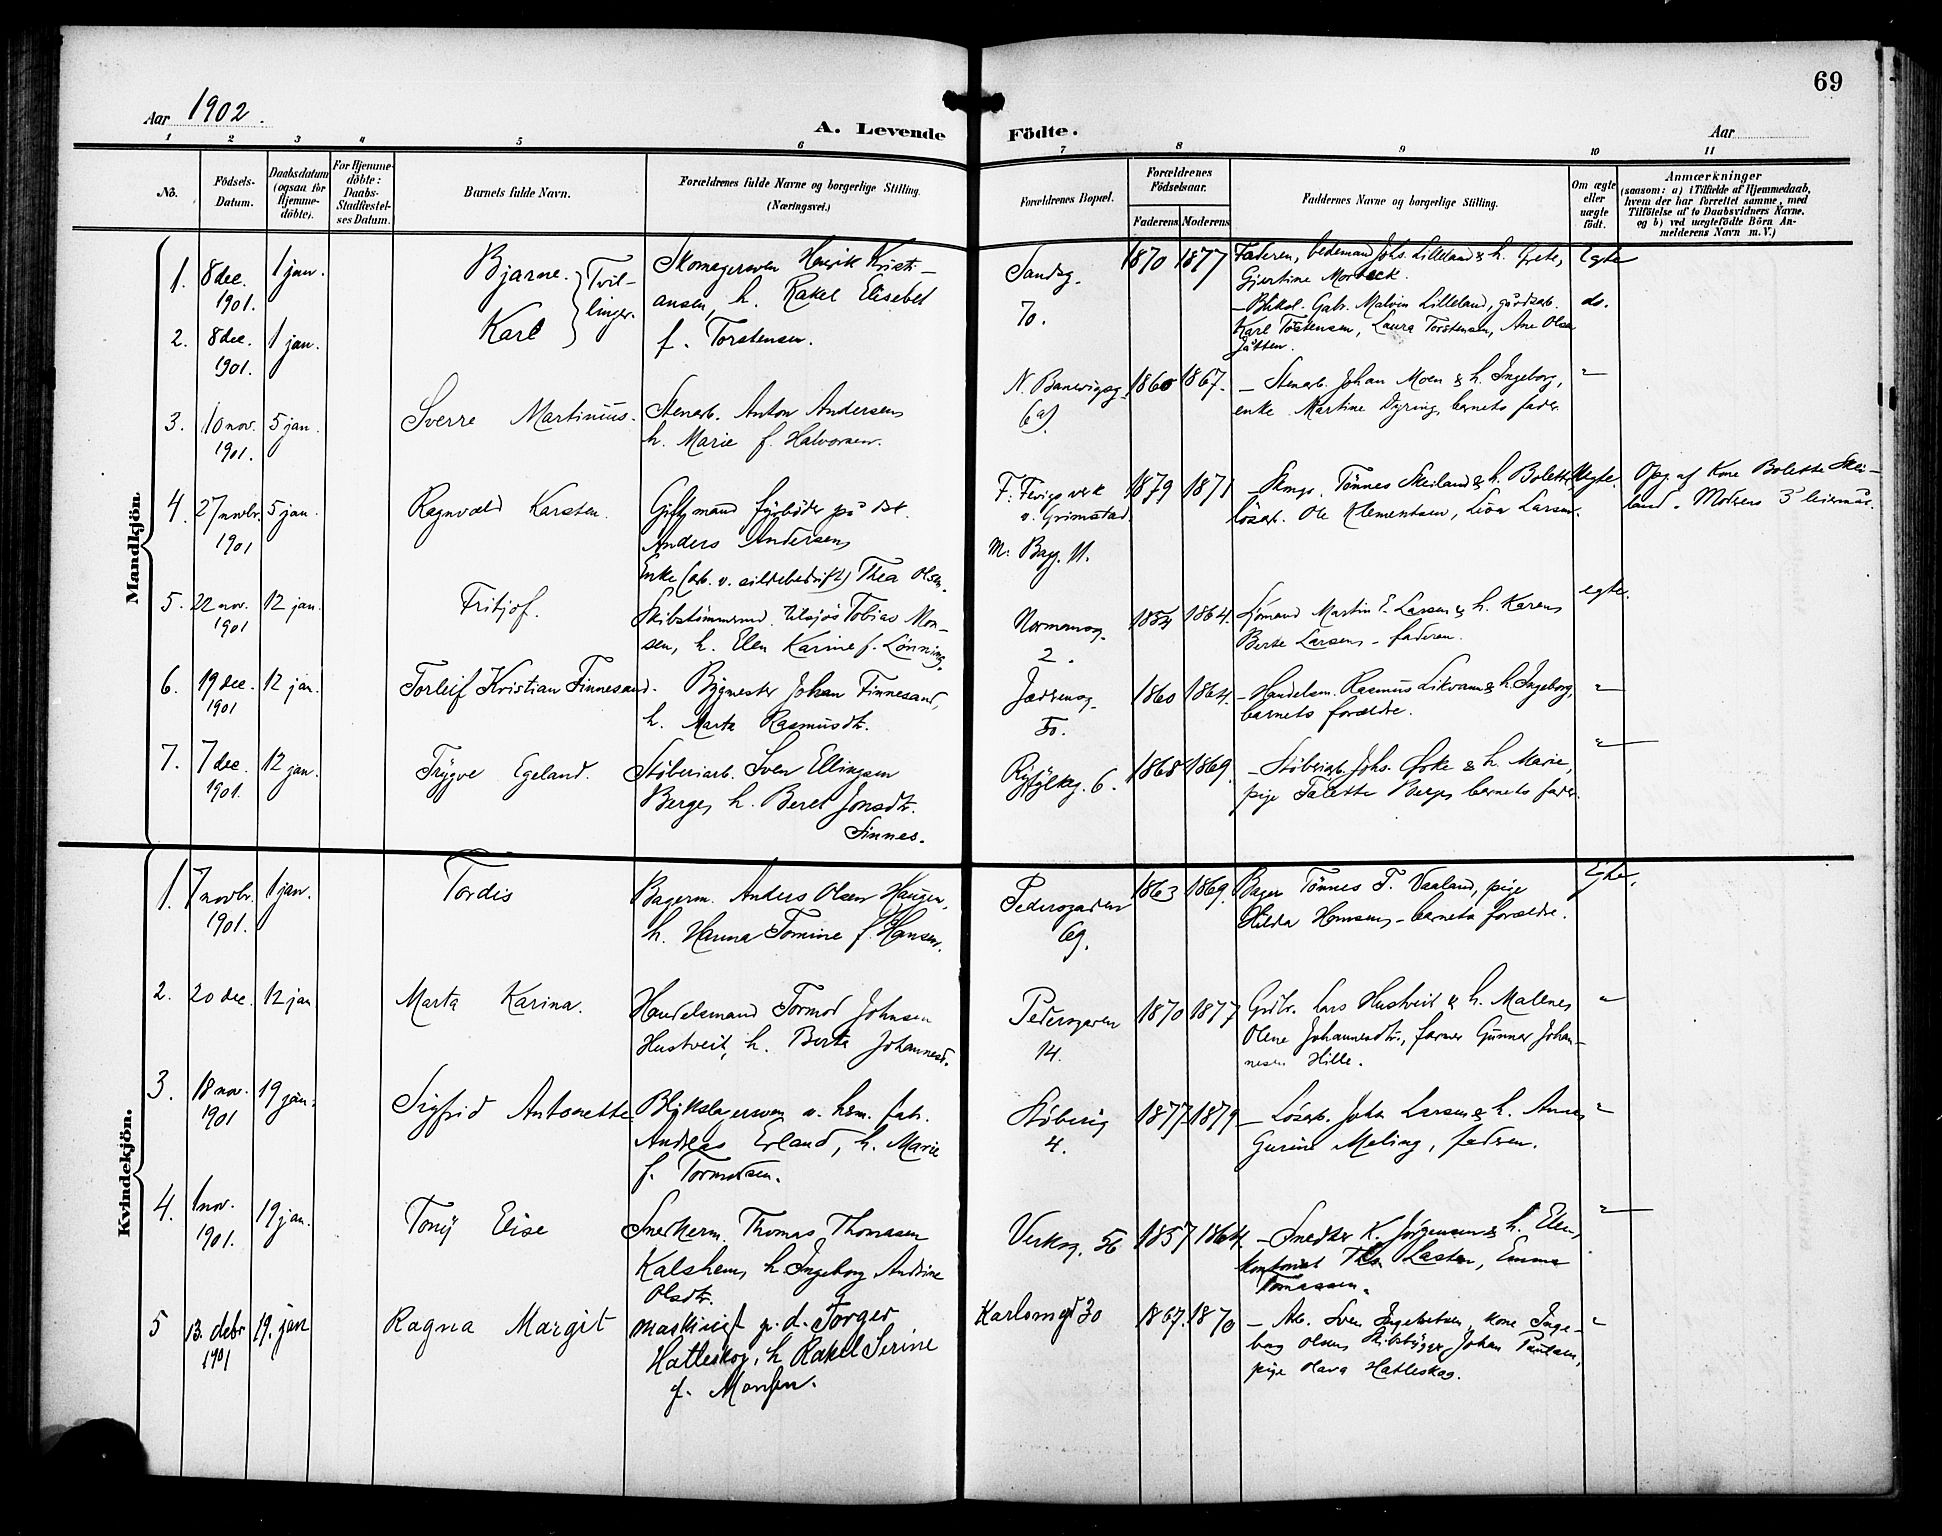 69
Aar 1902.
A. Levende Födte.
Aar
1 2 3 4 5 6 7 8 9 10 11
Nô.
Födsels-Datum.
Daabsdatum (ogsaa for Hjemme-döbte).
For Hjemme-döbte: Daabs-Stadfæstel-ses Datum.
Barnets fulde Navn.
Forældrenes fulde Navne og borgerlige Stilling.
(Næringsvei.)
Forældrenes Bopæl.
Forældrenes Födselsaar.
Faderens Moderens
Faddernes Navne og borgerlige Stilling.
Om ægte eller uægte födt.
Anmærkninger
(saasom: a) i Tilfælde af Hjemmedaab,
hvem der har forrettet samme, med
Tilföielse af to Daabsvidners Navne,
og b) ved uægtefödte Börn An-
melderens Navn m. V.)
Mandkjön
1. 8 dec. 1901. 1 jan. Bjarne. } Tvil-linger.
Skomagersven Henrik Kristi-
ansen, h. Rakel Elisebet
f. Torstensen.
Sandsg. 70.
1870 1877
Faderen, Vedemand Johs. Lilleland & h. Grete,
Gjertine Morbeck.
Egte
2. 8 dec. 1901. 1 jan. Karl
– Bliksl. Gabr. Malvin Lilleland, gårdsarb.
Karl Torstensen, Laura Torstensen, Ane Olsen
Jåtten.
do.
3. 10 nov. 1901. 5 jan. Sverre Martinius.
Stenarb. Anton Andersen,
h. Marie f. Halvorsen.
N. Banevigsg. 6a).
1860 1867.
– Stenarb. Johan Moen & h. Ingeborg,
enke Martine Dyring, barnets fader.
"
4. 27 novbr. 1901 5 jan. Ragnvald Karsten.
Gift mand fyrbøder på
Anders Andersen,
Enke (arb. v. sildebedrift) Thea Olsen.
F: Fevigs verk
v. Grimstad.
M: Berg. 11.
1879 1871
– Skomgs. Tønnes Skeiland & h. Bolette,
løsarb. Ole Klementsen, Lina Larsen.
Uegte.
Opg. af Kone Bolette Skei-
land. Moderens 3' leiermål.
5. 22 nov. 1901 12 jan. Fritjof.
Skibstømmermd. tilsjøs Tobias Mon-
sen, h. Elen Karine f. Lønning.
Normansg. 2.
1854 1864.
Sjømand Martin E. Larsen & h. Karen,
Berte Larsen, – faderen.
egte.
6. 19 dec. 1901 12 jan. Torleif Kristian Finnesand.
Bygmester Johan Finnesand,
h. Marta Rasmusdtr.
Jædersng. 50.
1860 1864.
– Handelsm. Rasmus Likvam & h. Ingeborg,
barnets forældre.
"
7. 7 dec. 1901. 12 jan. Trygve Egeland.
Støberiarb. Sven Ellingsen
Berge, h. Beret Jonsdtr.
Sinnes.
Ryfylkeg. 6.
1868 1869.
– Støberiarb. Johs. Orke & h. Marie,
pige Talette Berge, barnets fader.
"
Kvindekjön.
1. 7 novbr. 1901. 1 jan. Tordis
Bagerm. Anders Olsen Haugen,
h. Hanna Tomine f. Hansen.
Pedersgaden 69.
1863 1869.
Bager Tønnes T. Vaaland, pige
Hilda Hansen, – barnets forældre.
Egte.
2. 20 dec. 12 jan Marta Karina.
Handelsmand Tormod Johnsen
Hustveit, h. Berta Johannesd.
Pedersgaden 14.
1870 1877
Grdbr. Lars Hustveit & h. Malene,
Olene Johannesdtr., farmer Gunner Johan-
nesen Hille.
"
3. 18 nov. 1901 19 jan. Sigfrid Antonette
Blikslagersven v. herm. fabr.
Andreas Erland, h. Marie
f. Tormodsen.
Støberig 4.
1877 1879
– Løsarb. John Larsen & h. Anne,
Gurine Meling, faderen.
"
4. 1 nov. 1901. 19 jan. Tony Elise
Snekkerm. Thomas Thomasen
Kalshem, h. Ingeborg Andrine
Olsdtr.
Verksg. 56
1857 1864.
– Snedker K. Jørgensen & h. Elen,
kontorist Ths. Laster, Emma
Tomassen.
"
5 13. debr 1901 19. jan Ragna Margit
maskinist p. d. Torger
Hatleskog, h. Rakel Serine
f. Monsen.
Karlsmgt 30
1867. 1870
– Arb. Sven Ingebretsen, kone Inge-
borg Olsen, Skibsbygger Johan Paulsen,
pige Olava Hatleskog.
"